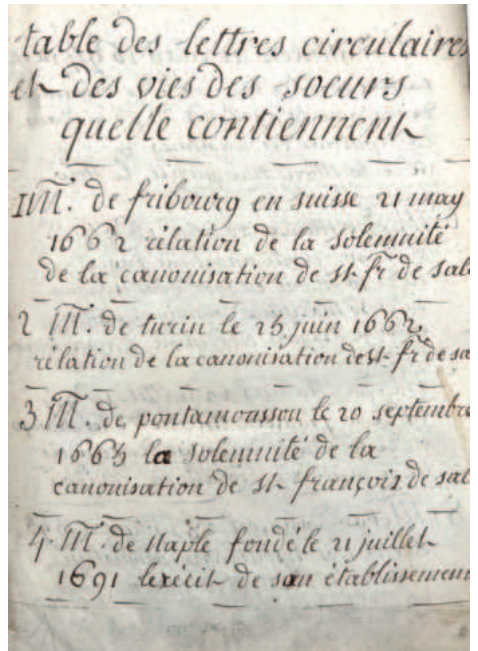 table des lettres circulaires
et des vies des soeurs
quelle contiennent
1 M. de fribourg en suisse 21 may
1662 rélation de la solemnité
de la canonisation de st fr de sal
2 M. de turin le 25 juin 1662
rélation de la canonisation de st fr de sa
3 M. de pontamousson le 20 septembre
1665 la solemnité de la
canonisation de st françois de sal
4 M. de naple fondé le 21 juillet
1691 le récit de son établissement